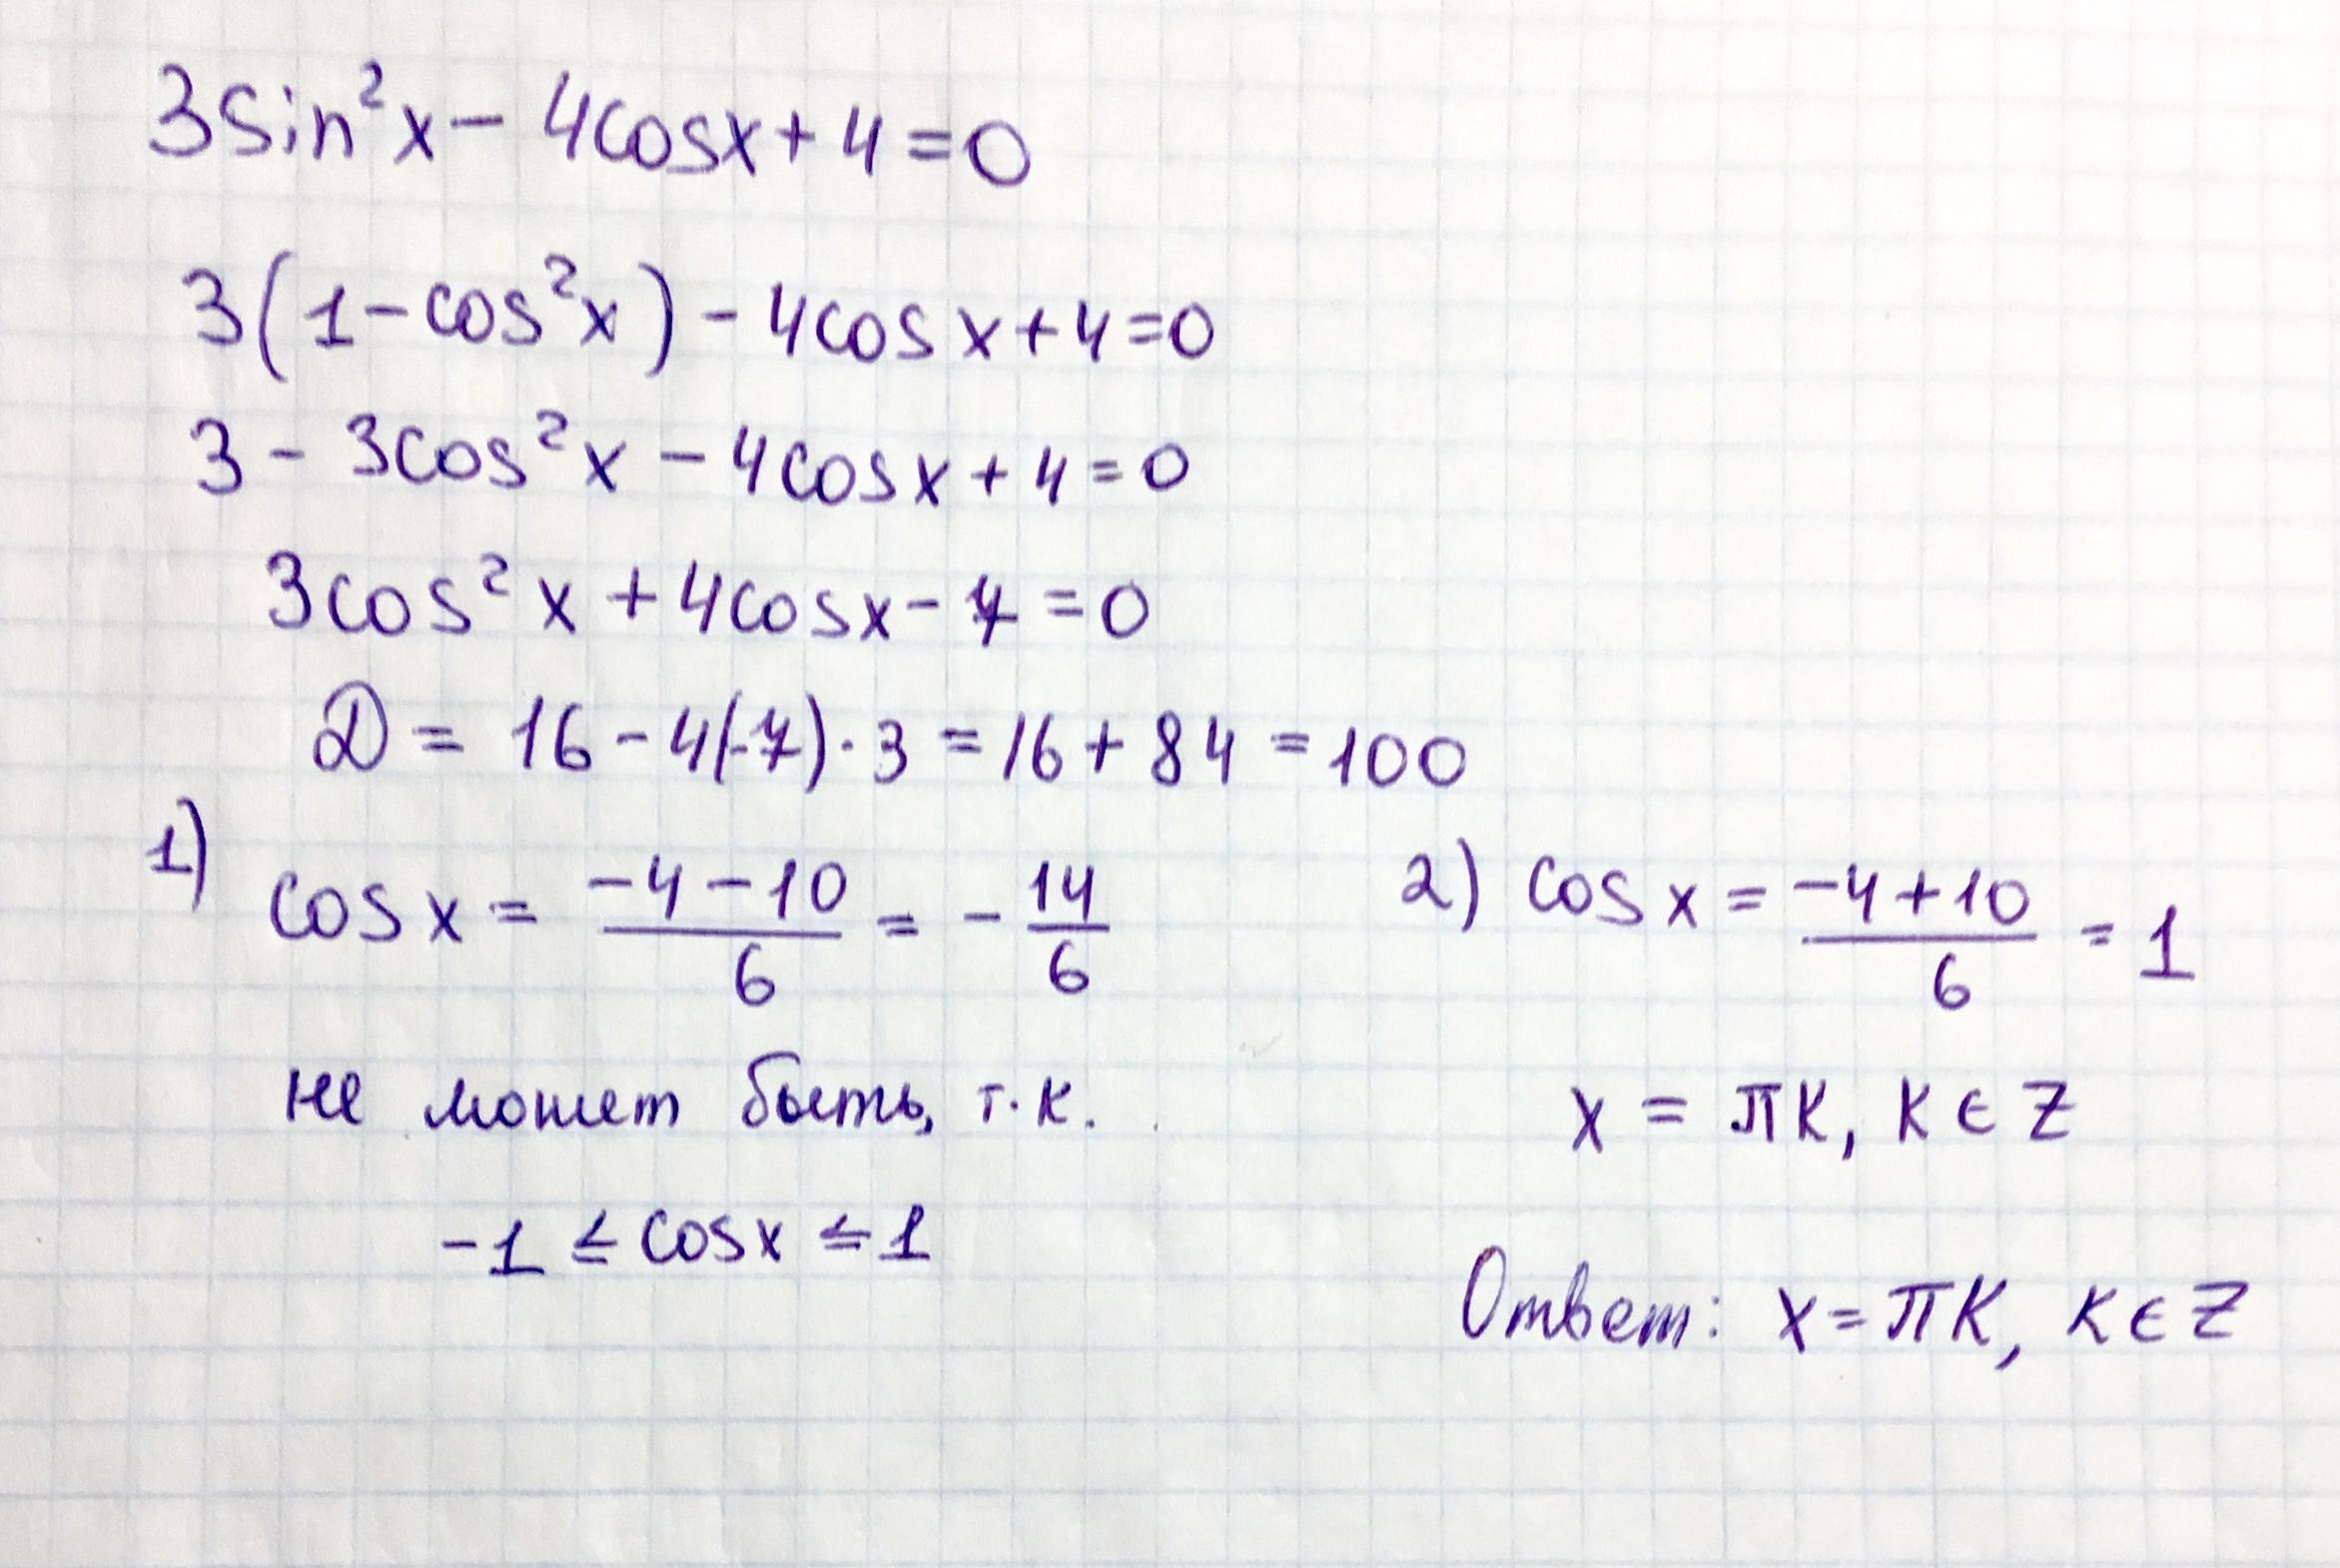 3sin²x - 4cosx + 4 = 0
3(1 - cos²x) - 4cosx + 4 = 0
3 - 3cos²x - 4cosx + 4 = 0
3cos²x + 4cosx - 7 = 0
D = 16 - 4(-7)·3 = 16 + 84 = 100
1) cosx = (-4 - 10)/6 = -14/6
не может быть, т.к.
-1 ≤ cosx ≤ 1
2) cosx = (-4 + 10)/6 = 1
x = πk, k ∈ Z
Ответ: x = πk, k ∈ Z